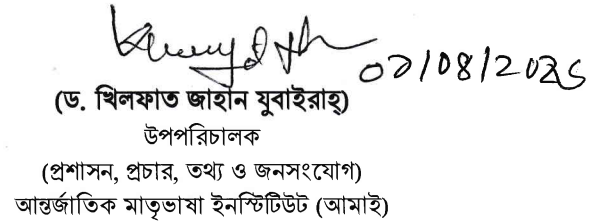 (ড. খিলফাত জাহান যুবাইরাহ্)
উপপরিচালক
(প্রশাসন, প্রচার, তথ্য ও জনসংযোগ)
আন্তর্জাতিক মাতৃভাষা ইনস্টিটিউট (আমাই)